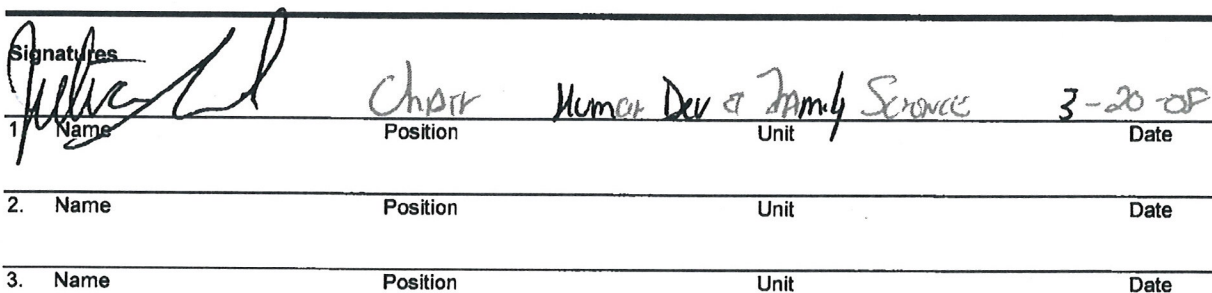 Signatures
Chair Human Dev & Family Science 3-20-08
1 Name Position Unit Date
2. Name Position Unit Date
3. Name Position Unit Date